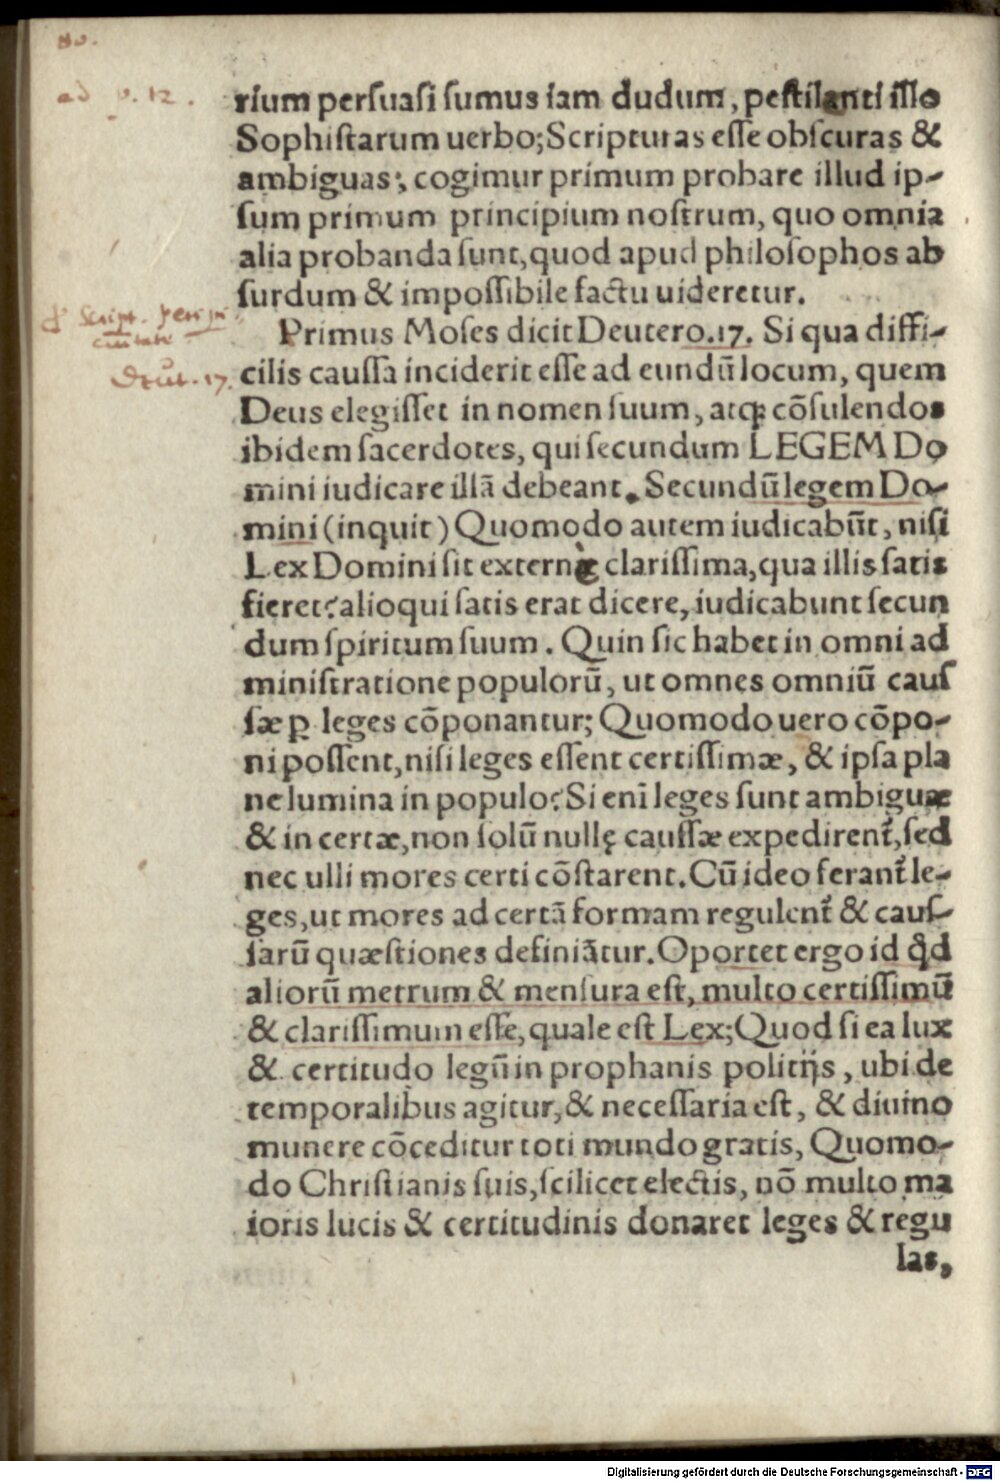 80.
ad v. 12.
rium persuasi sumus iam dudum, pestilanti illo
Sophistarum uerbo; Scripturas esse obscuras &
ambiguas; cogimur primum probare illud ip-
sum primum principium nostrum, quo omnia
alia probanda sunt, quod apud philosophos ab
surdum & impossibile factu uideretur.
Primus Moses dicit Deutero. 17. Si qua diffi-
Deut. 17.
cilis caussa inciderit esse ad eundū locum, quem
Deus elegisset in nomen suum, atqꝫ cōsulendos
ibidem sacerdotes, qui secundum LEGEM Do
mini iudicare illā debeant. Secundū legem Do-
mini (inquit) Quomodo autem iudicabūt, nisi
Lex Domini sit externę clarissima, qua illis satis
fieret? alioqui satis erat dicere, iudicabunt secun
dum spiritum suum. Quin sic habet in omni ad
ministratione populorū, ut omnes omniū caus
sæ ꝑ leges cōponantur; Quomodo uero cōpo-
ni possent, nisi leges essent certissimæ, & ipsa pla
ne lumina in populo? Si eni leges sunt ambiguæ
& in certæ, non solū nullę caussæ expedirent, sed
nec ulli mores certi cōstarent. Cū ideo ferant le-
ges, ut mores ad certā formam regulent & caus-
sarū quæstiones definiātur. Oportet ergo id qd
aliorū metrum & mensura est, multo certissimū
& clarissimum esse, quale est Lex; Quod si ea lux
& certitudo legū in prophanis politijs, ubi de
temporalibus agitur, & necessaria est, & diuino
munere cōceditur toti mundo gratis, Quomo-
do Christianis suis, scilicet electis, nō multo ma
ioris lucis & certitudinis donaret leges & regu
las,
Digitalisierung gefördert durch die Deutsche Forschungsgemeinschaft - DFG